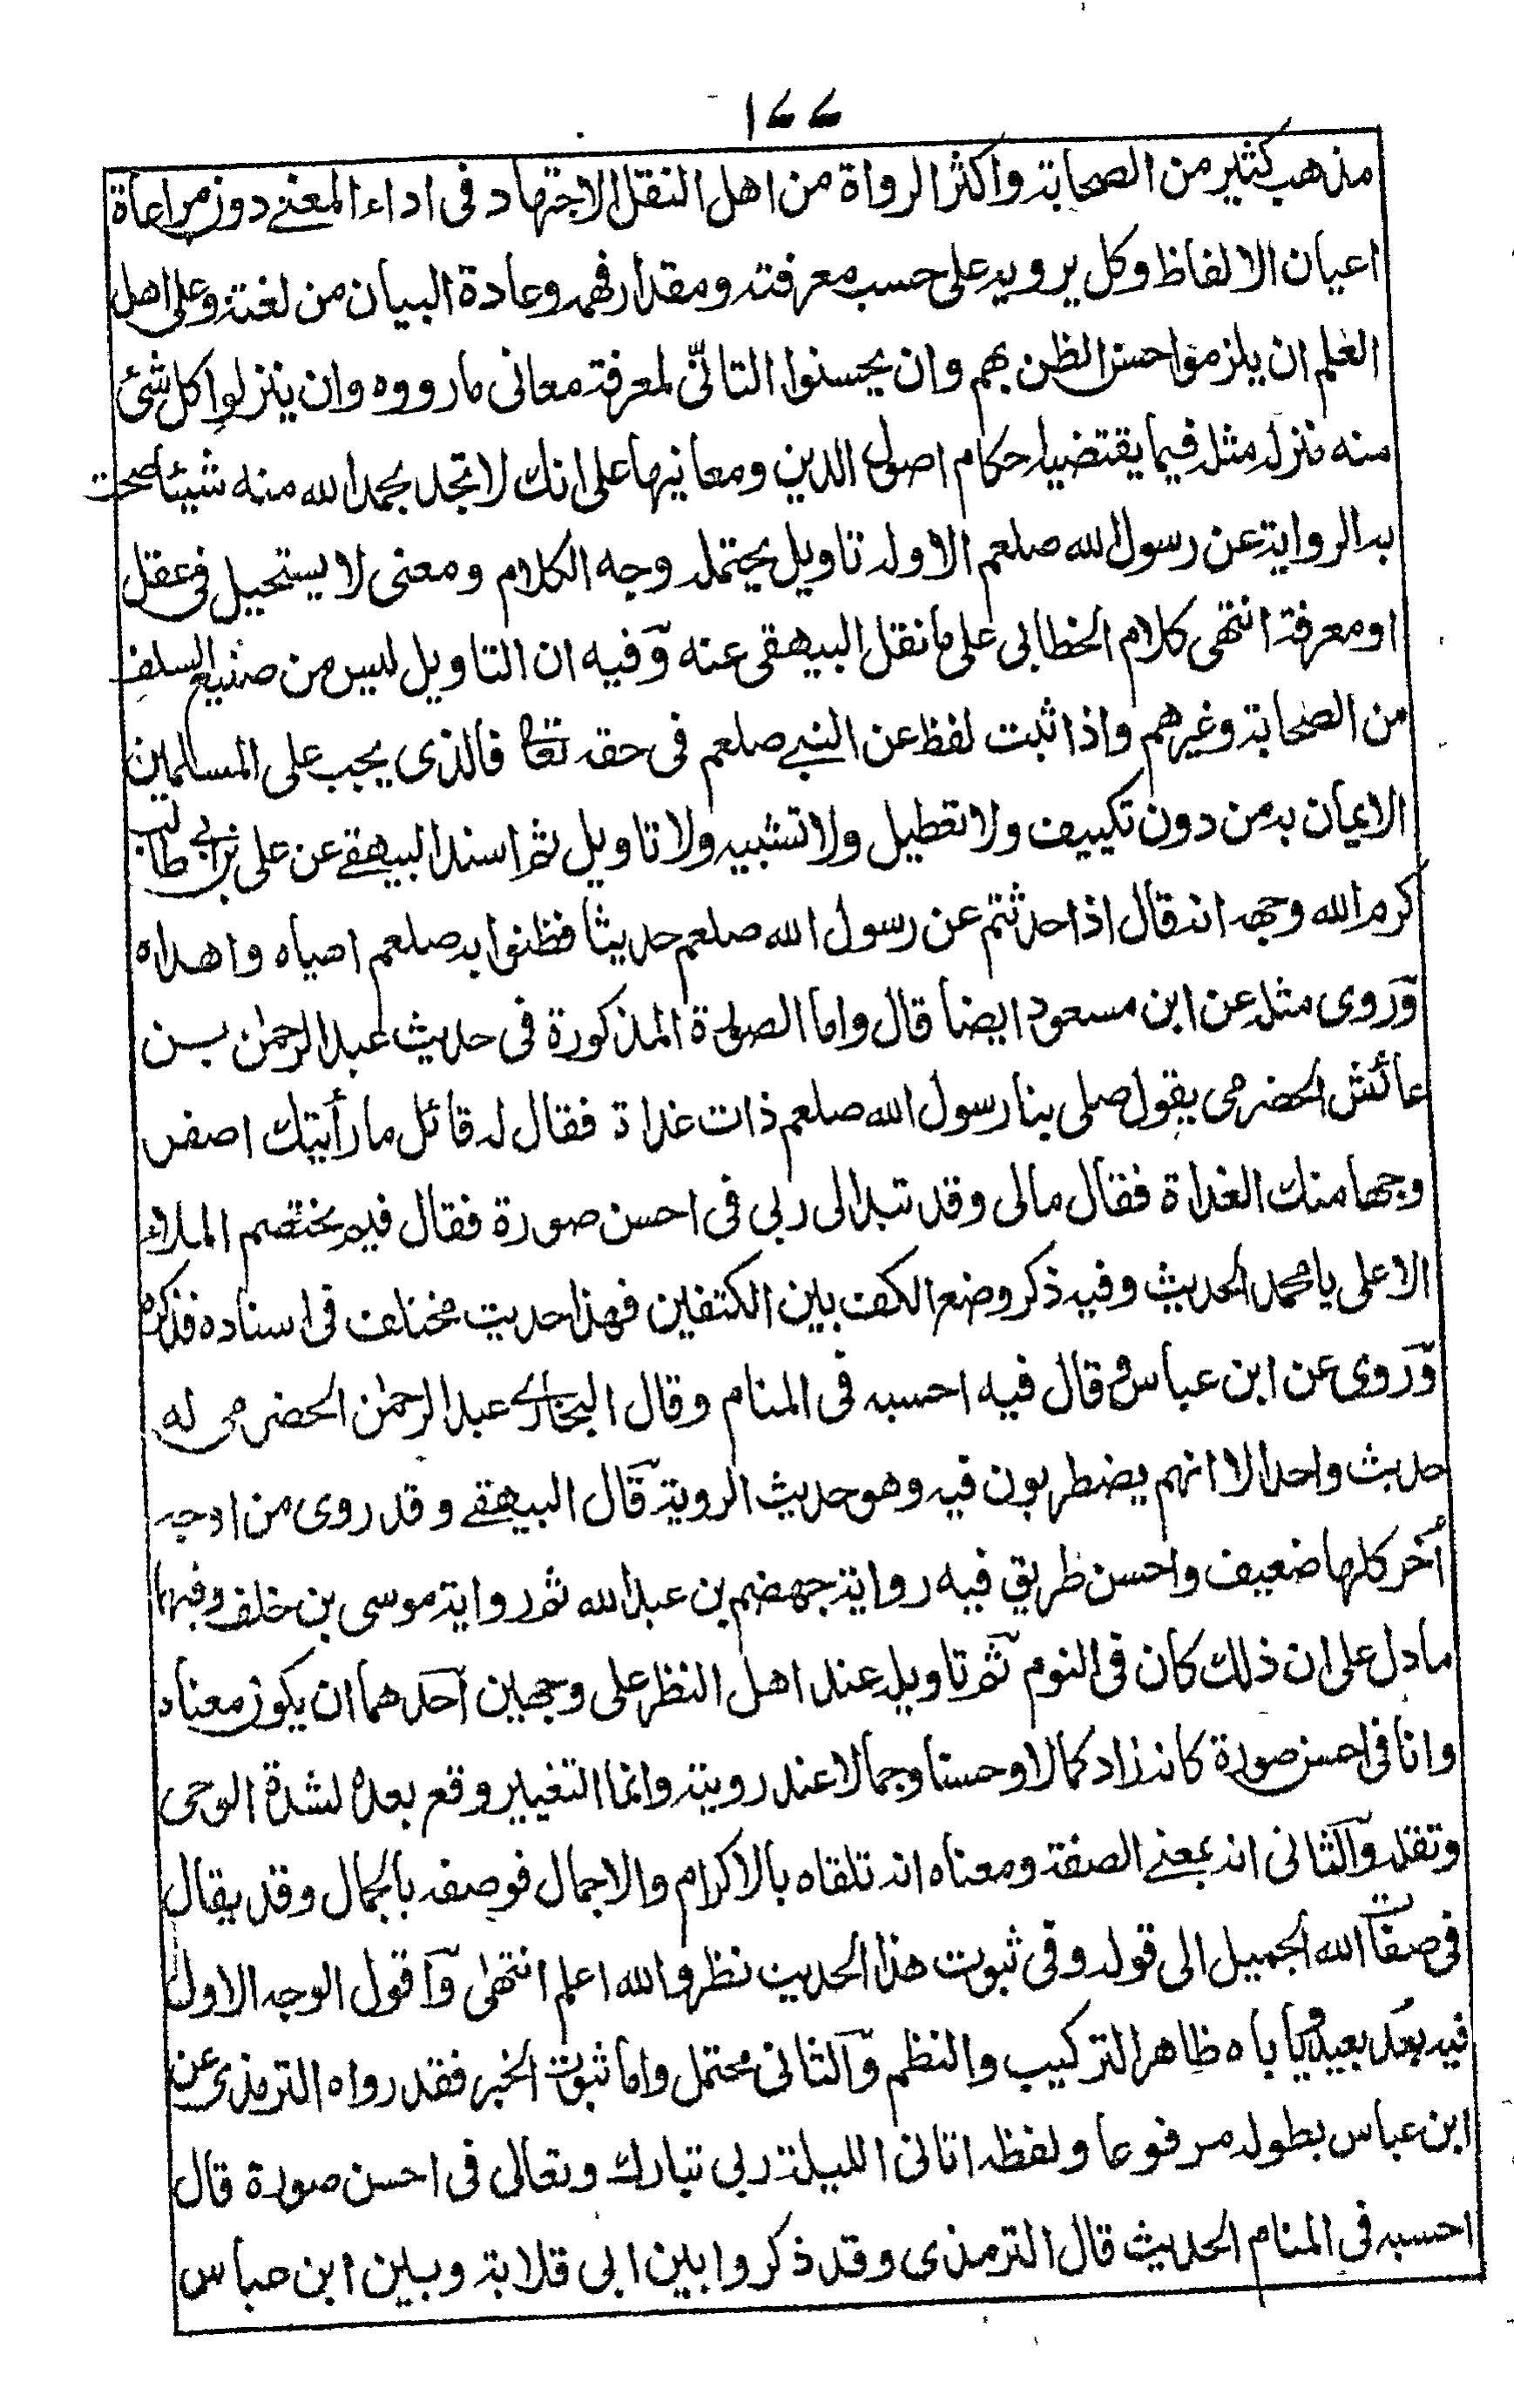 ١٤٤
مذهب كثير من الصحابة واكثر الرواة من اهل النقل الاجتهاد فى اداء المعنے دون مراعاة
اعيان الالفاظ وكل يرويه على حسب معرفته ومقدار فهمه وعادة البيان من لغته وعلى اهل
العلم ان يلزموا حسن الظن بهم وان يحسنوا التانّى لمعرفة معانى ما رووه وان ينزلوا كل شئ
منه منزلة مثله فيما يقتضيه احكام اصول الدين ومعانيها على انك لا تجد بحمد الله منه شيئا صحت
به الرواية عن رسول الله صلعم الا وله تاويل يحتمله وجه الكلام ومعنى لا يستحيل فى عقل
او معرفة انتهى كلام الخطابى على ما نقل البيهقى عنه وفيه ان التاويل ليس من صنيع السلف
من الصحابة وغيرهم واذا ثبت لفظ عن النبے صلعم فى حقه تعالى فالذى يجب على المسلمين
الايمان به من دون تكييف ولا تعطيل ولا تشبيه ولا تاويل ثم اسند البيهقے عن على بن ابى طالب
كرم الله وجهه انه قال اذا حدثتم عن رسول الله صلعم حديثا فظنوا به صلعم اهياه واهداه
وروى مثله عن ابن مسعود ايضا قال واما الصورة المذكورة فى حديث عبد الرحمٰن بن
عائش الحضرمى يقول صلى بنا رسول الله صلعم ذات غداة فقال له قائل ما رأيتك اصفر
وجها منك الغداة فقال مالى وقد تبدالى ربى فى احسن صورة فقال فيم يختصم الملاء
الاعلى يا محمد الحديث وفيه ذكر وضع الكف بين الكتفين فهذا حديث مختلف فى اسناده فذكره
وروى عن ابن عباس وقال فيه احسبه فى المنام وقال البخارے عبد الرحمٰن الحضرمى له
حديث واحد الا انهم يضطربون فيه وهو حديث الروية قال البيهقے وقد روى من اوجه
أخر كلها ضعيف واحسن طريق فيه رواية جهضم بن عبد الله ثم رواية موسى بن خلف وفيهما
ما دل على ان ذلك كان فى النوم ثم تاويله عند اهل النظر على وجهين احدهما ان يكون معناه
وانا فى احسن صورة كانه زاد كمالا وحسنا وجمالا عند رويته وانما التغيير وقع بعده لشدة الوحى
وثقله والثانى انه بمعنے الصفة ومعناه انه تلقاه بالاكرام والاجمال فوصفه بالجمال وقد يقال
فى صفات الله الجميل الى قوله وفى ثبوت هذا الحديث نظر والله اعلم انتهىٰ واقول الوجه الاول
فيه بعد بعيد وياباه ظاهر التركيب والنظم والثانى محتمل واما ثبوت الخبر فقد رواه الترمذى عن
ابن عباس بطوله مرفوعا ولفظه اتانى الليلة ربى تبارك وتعالى فى احسن صورة قال
احسبه فى المنام الحديث قال الترمذى وقد ذكروا بين ابى قلابة وبين ابن عباس